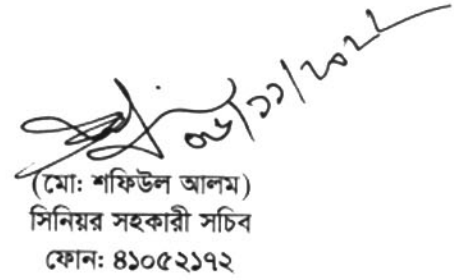 ০৮/১১/২০২২
(মো: শফিউল আলম)
সিনিয়র সহকারী সচিব
ফোন: ৪১০৫২১৭২